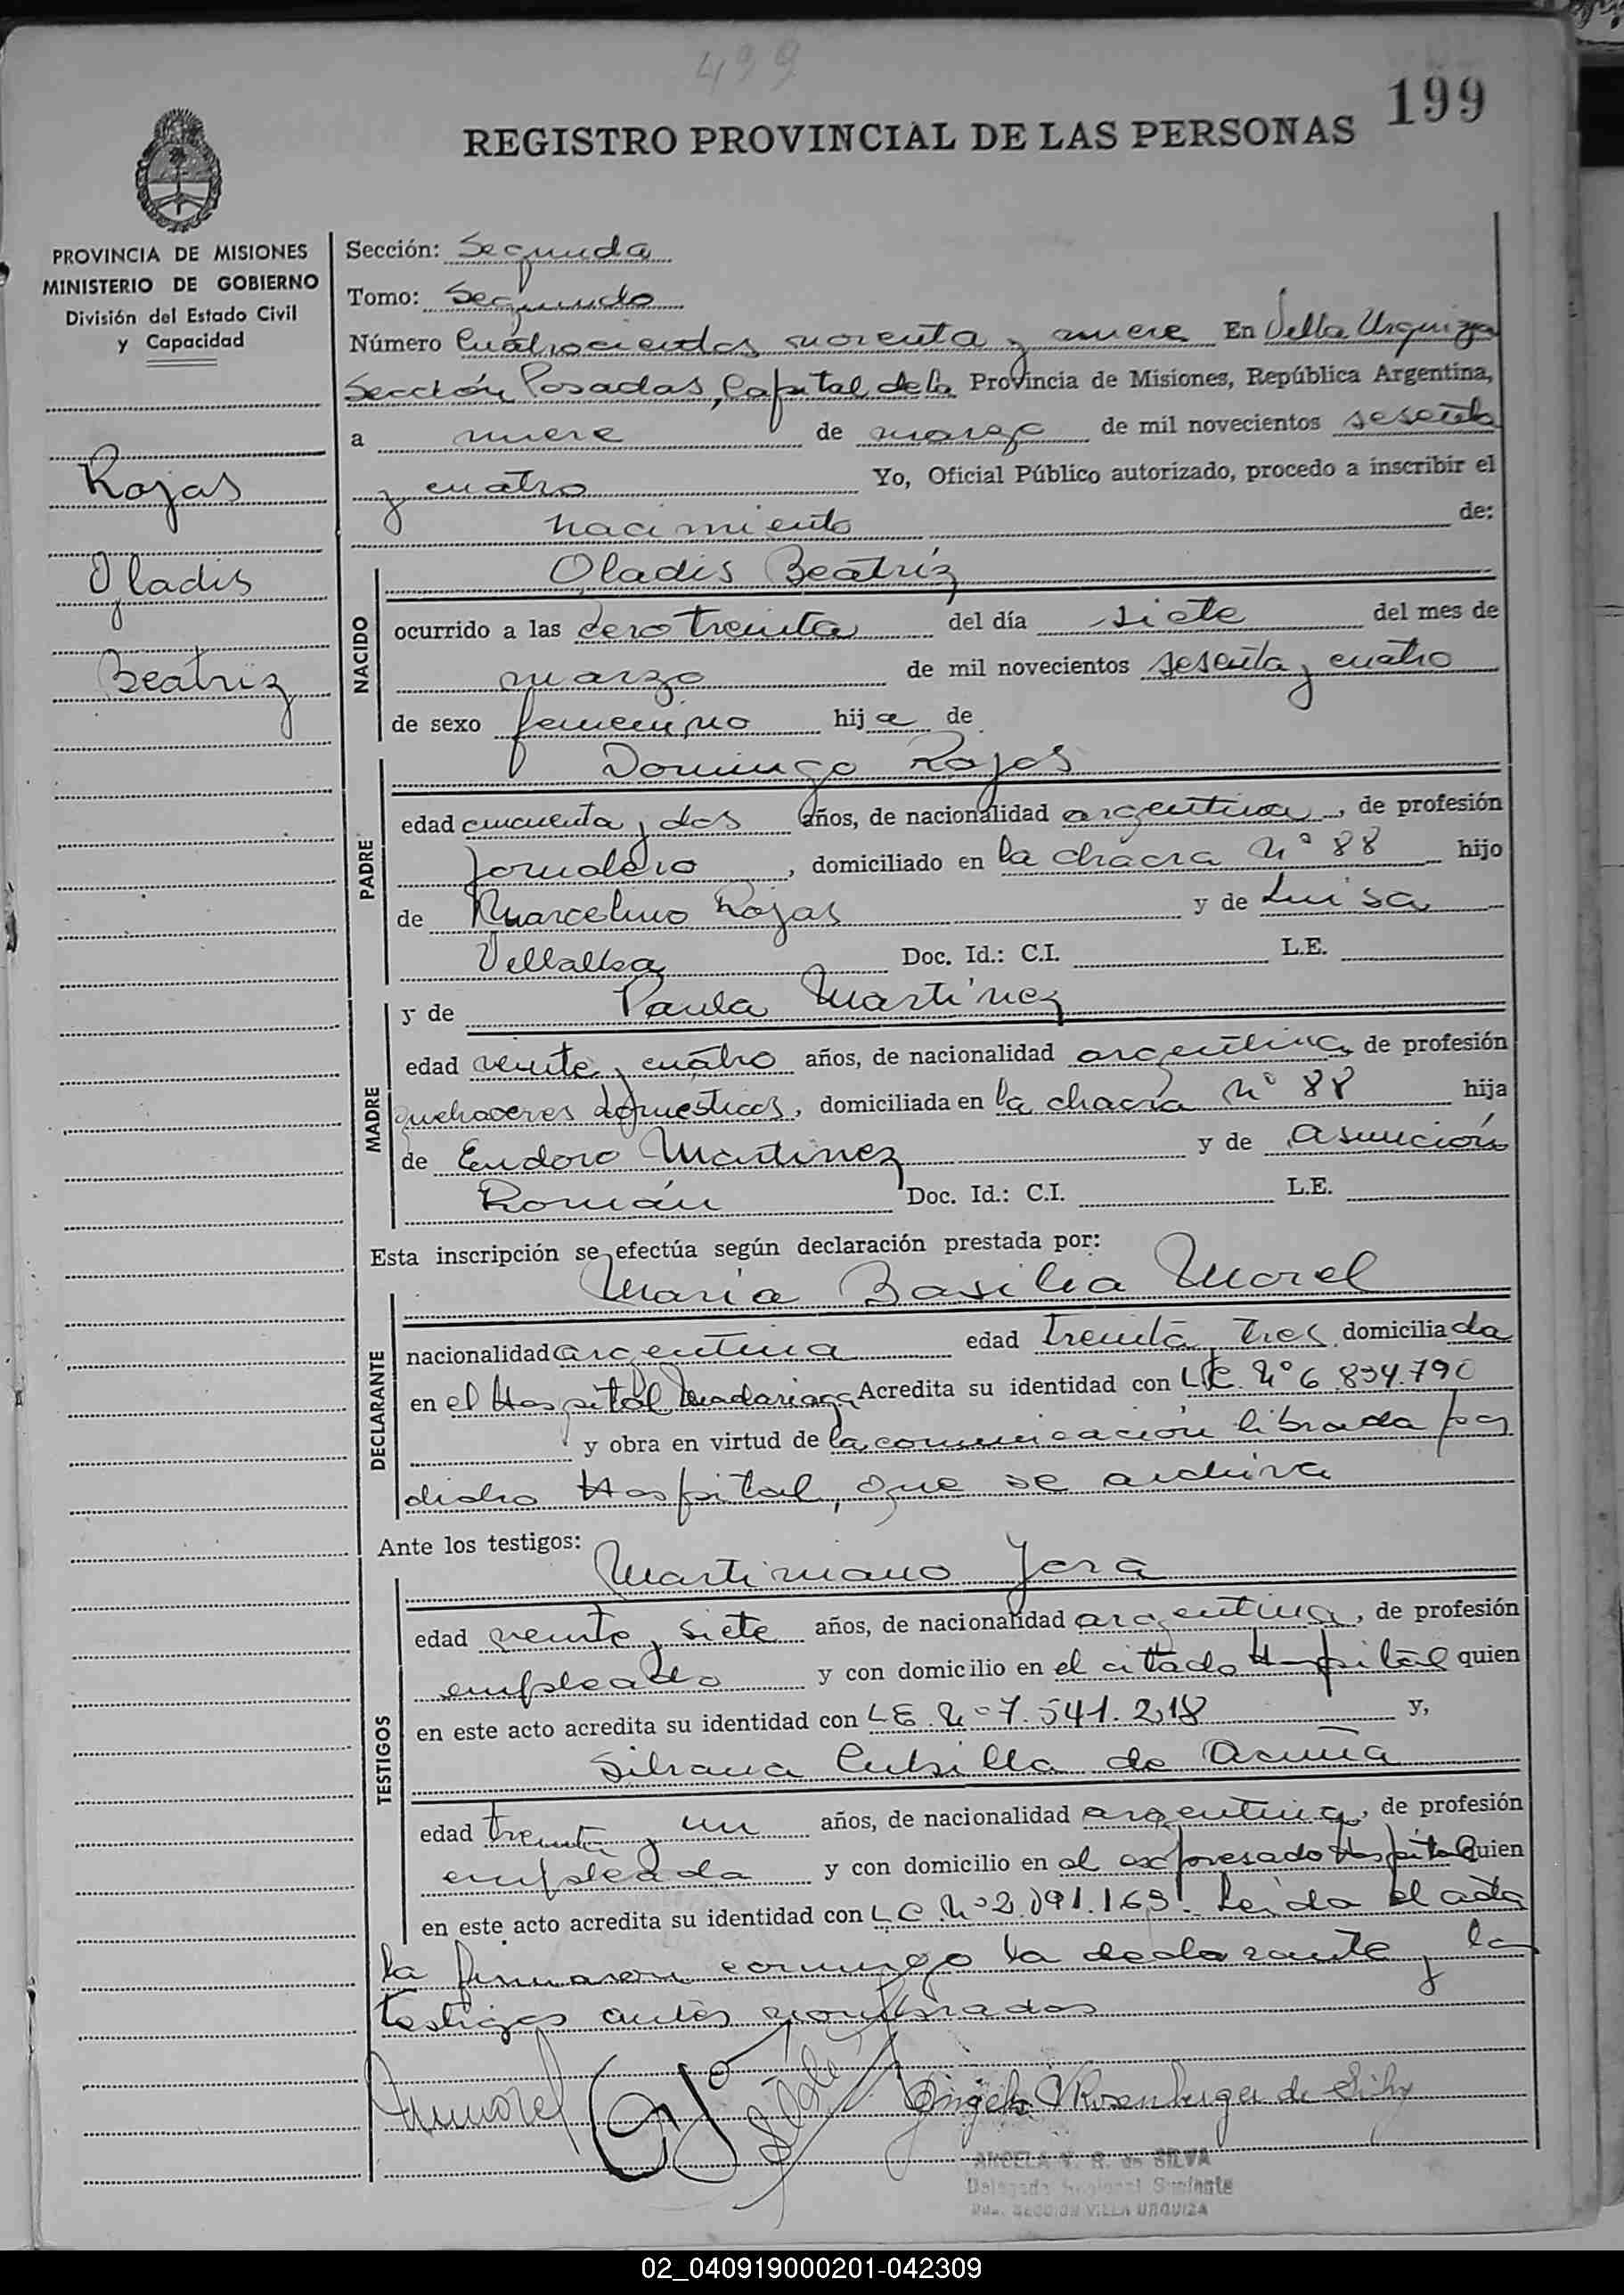 499
199
REGISTRO PROVINCIAL DE LAS PERSONAS
PROVINCIA DE MISIONES
MINISTERIO DE GOBIERNO
División del Estado Civil
y Capacidad
Rojas
Gladis
Beatriz
Sección: Segunda
Tomo: Segundo
Número Cuatrocientos noventa y nueve En Villa Urquiza
Sección Posadas, Capital de la Provincia de Misiones, República Argentina,
a nueve de marzo de mil novecientos sesenta
y cuatro Yo, Oficial Público autorizado, procedo a inscribir el
nacimiento de:
NACIDO
Gladis Beatriz
ocurrido a las cero treinta del día siete del mes de
marzo de mil novecientos sesenta y cuatro
de sexo femenino hija de
PADRE
Domingo Rojas
edad cincuenta y dos años, de nacionalidad argentina, de profesión
jornalero, domiciliado en la chacra Nº 88 hijo
de Marcelino Rojas y de Luisa
Villalba Doc. Id.: C.I. L.E.
MADRE
y de Paula Martínez
edad veinte y cuatro años, de nacionalidad argentina, de profesión
quehaceres domesticos, domiciliada en la chacra Nº 88 hija
de Eudoro Martinez y de Asunción
Román Doc. Id.: C.I. L.E.
Esta inscripción se efectúa según declaración prestada por:
DECLARANTE
María Basilia Morel
nacionalidad argentina edad treinta y tres domiciliada
en el Hospital Madariaga Acredita su identidad con L.C. Nº 6.834.790
y obra en virtud de la comunicación librada por
dicho Hospital, que se archiva
Ante los testigos:
TESTIGOS
Martiniano Jara
edad veinte y siete años, de nacionalidad argentina, de profesión
empleado y con domicilio en el citado Hospital quien
en este acto acredita su identidad con L E. Nº 7.541.218 y,
Silvana Cubilla de Acuña
edad treinta y un años, de nacionalidad argentina, de profesión
empleada y con domicilio en el expresado Hospital quien
en este acto acredita su identidad con L C. Nº 2.091.163. Leída el acta
la firmaron conmigo la declarante y los
testigos antes nombrados
Angela V Rosenberger de Silva
ANGELA V. R. de SILVA
Delegada Regional Suplente
SECCION VILLA URQUIZA
02_040919000201-042309